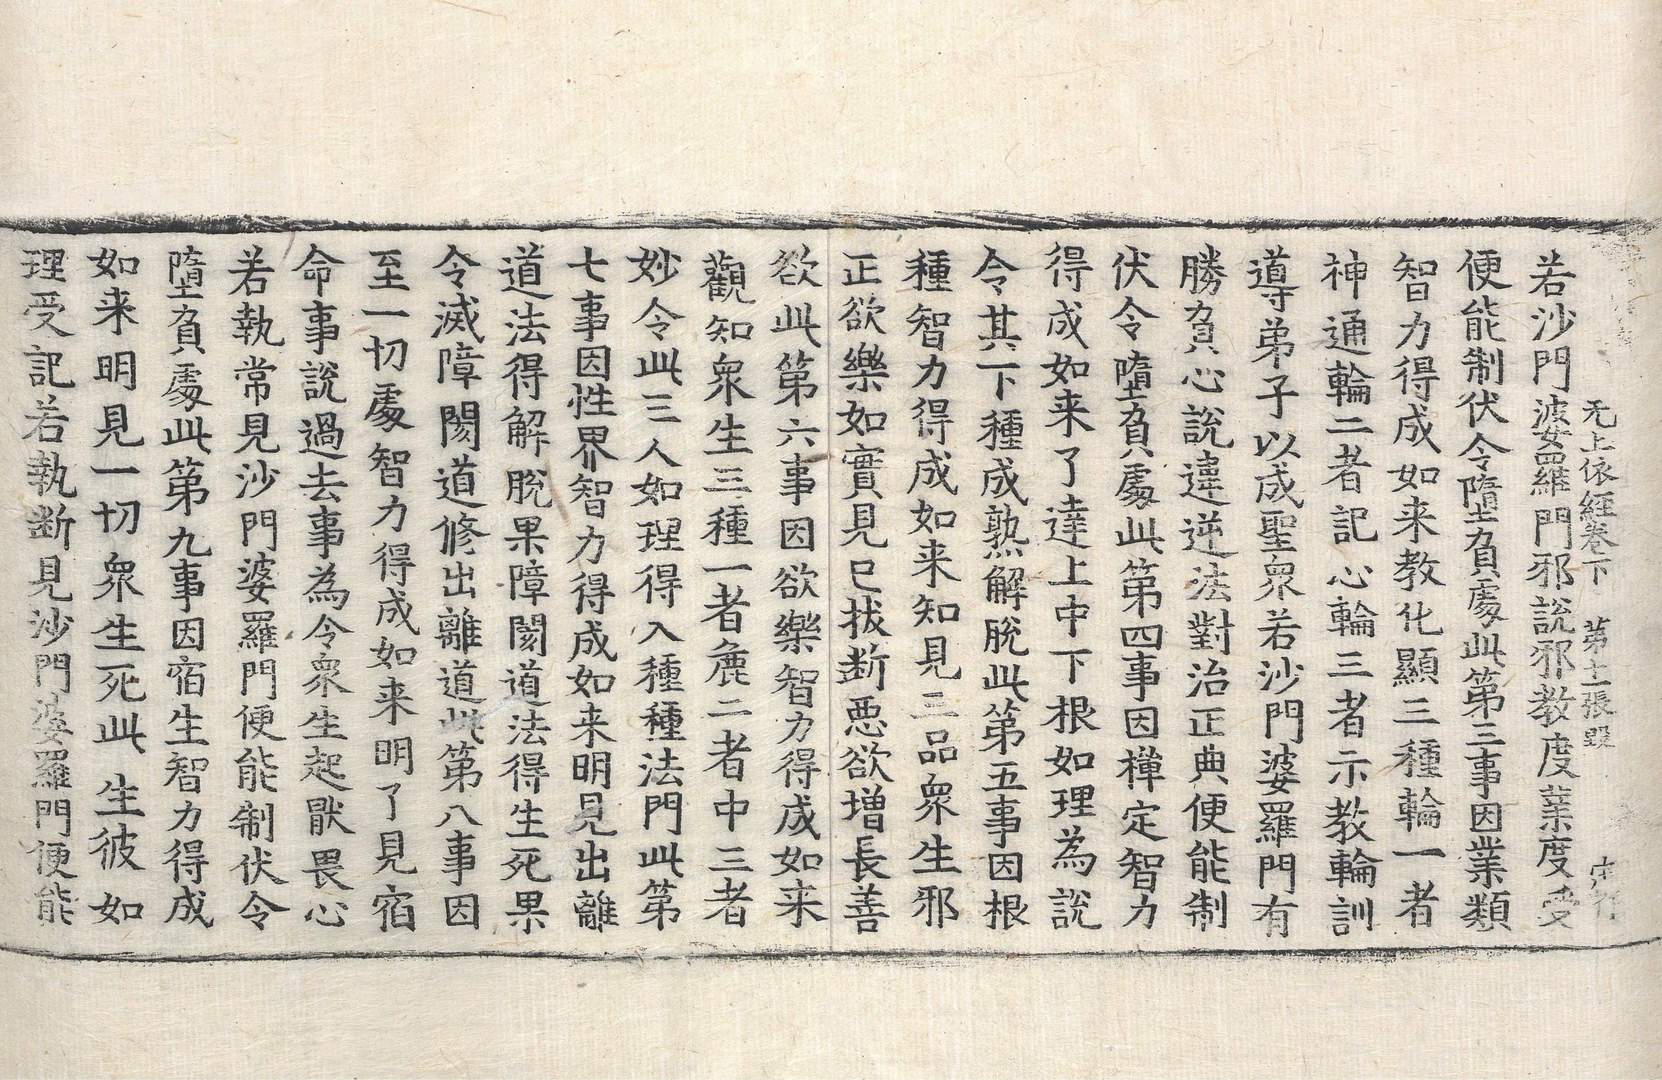 无上依經卷下 第十二張 毀
若沙門婆羅門邪說邪教度業度受
便能制伏令墮負處此第三事因業類
智力得成如来教化顯三種輪一者
神通輪二者記心輪三者示教輪訓
導弟子以成聖眾若沙門婆羅門有
勝負心說違逆法對治正典便能制
伏令墮負處此第四事因禪定智力
得成如来了達上中下根如理為說
令其下種成熟解脫此第五事因根
種智力得成如来知見三品眾生邪
正欲樂如實見已拔斷惡欲增長善
欲此第六事因欲樂智力得成如来
觀知眾生三種一者麁二者中三者
妙令此三人如理得入種種法門此第
七事因性界智力得成如来明見出離
道法得解脫果障閡道法得生死果
令滅障閡道修出離道此第八事因
至一切處智力得成如来明了見宿
命事說過去事為令眾生起厭畏心
若執常見沙門婆羅門便能制伏令
墮負處此第九事因宿生智力得成
如来明見一切眾生死此生彼如
理受記若執斷見沙門婆羅門便能